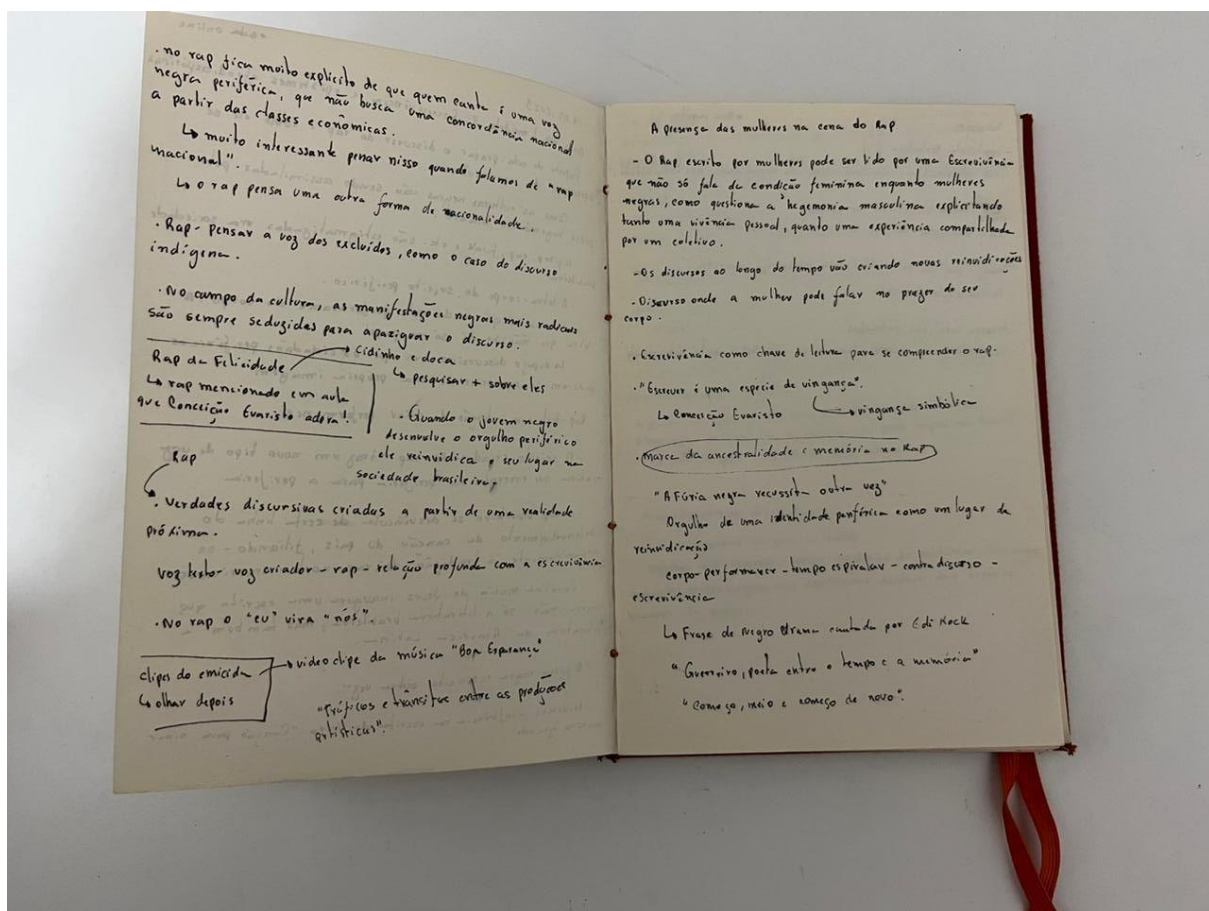 . no rap fica muito explícito de que quem canta é uma voz
negra periférica, que não busca uma concordância nacional
a partir das classes econômicas.
↳ muito interessante penar nisso quando falamos de "rap
nacional".
↳ o rap pensa uma outra forma de nacionalidade.
. Rap - pensar a voz dos excluídos, como o caso do discurso
indígena.
. No campo da cultura, as manifestações negras mais radicais
são sempre seduzidas para apaziguar o discurso.
Rap da Felicidade → Cidinho e doca
↳ pesquisar + sobre eles
↳ rap mencionado em aula
que Conceição Evaristo adora!
. Quando o jovem negro
desenvolve o orgulho periférico
ele reinvidica o seu lugar na
sociedade brasileira.
Rap
. Verdades discursivas criadas a partir de uma realidade
próxima.
Voz texto - voz criador - rap - relação profunda com a escrevivência
. No rap o "eu" vira "nós".
clipes do emicida → videoclipe da música "Boa Esperança"
↳ olhar depois
"Tráficos e trânsitos entre as produções
artísticas".
A presença das mulheres na cena do Rap
- O Rap escrito por mulheres pode ser lido por uma Escrevivência
que não só fala da condição feminina enquanto mulheres
negras, como questiona a hegemonia masculina explicitando
tanto uma vivência pessoal, quanto uma experiência compartilhada
por um coletivo.
- Os discursos ao longo do tempo vão criando novas reinvidicações
- Discurso onde a mulher pode falar no prazer do seu
corpo.
. Escrevivência como chave de leitura para se compreender o rap.
. "Escrever é uma espécie de vingança".
↳ Conceição Evaristo → vingança simbólica
. marca da ancestralidade e memória no Rap
"A Fúria negra recussita outra vez"
Orgulho de uma identidade periférica como um lugar da
reinvidicação
corpo-performance - tempo espiralar - contra discurso -
escrevivência
↳ Frase de Negro Drama cantada por Edi Rock
"Guerreiro, poeta entre o tempo e a memória"
"Começo, meio e começo de novo".